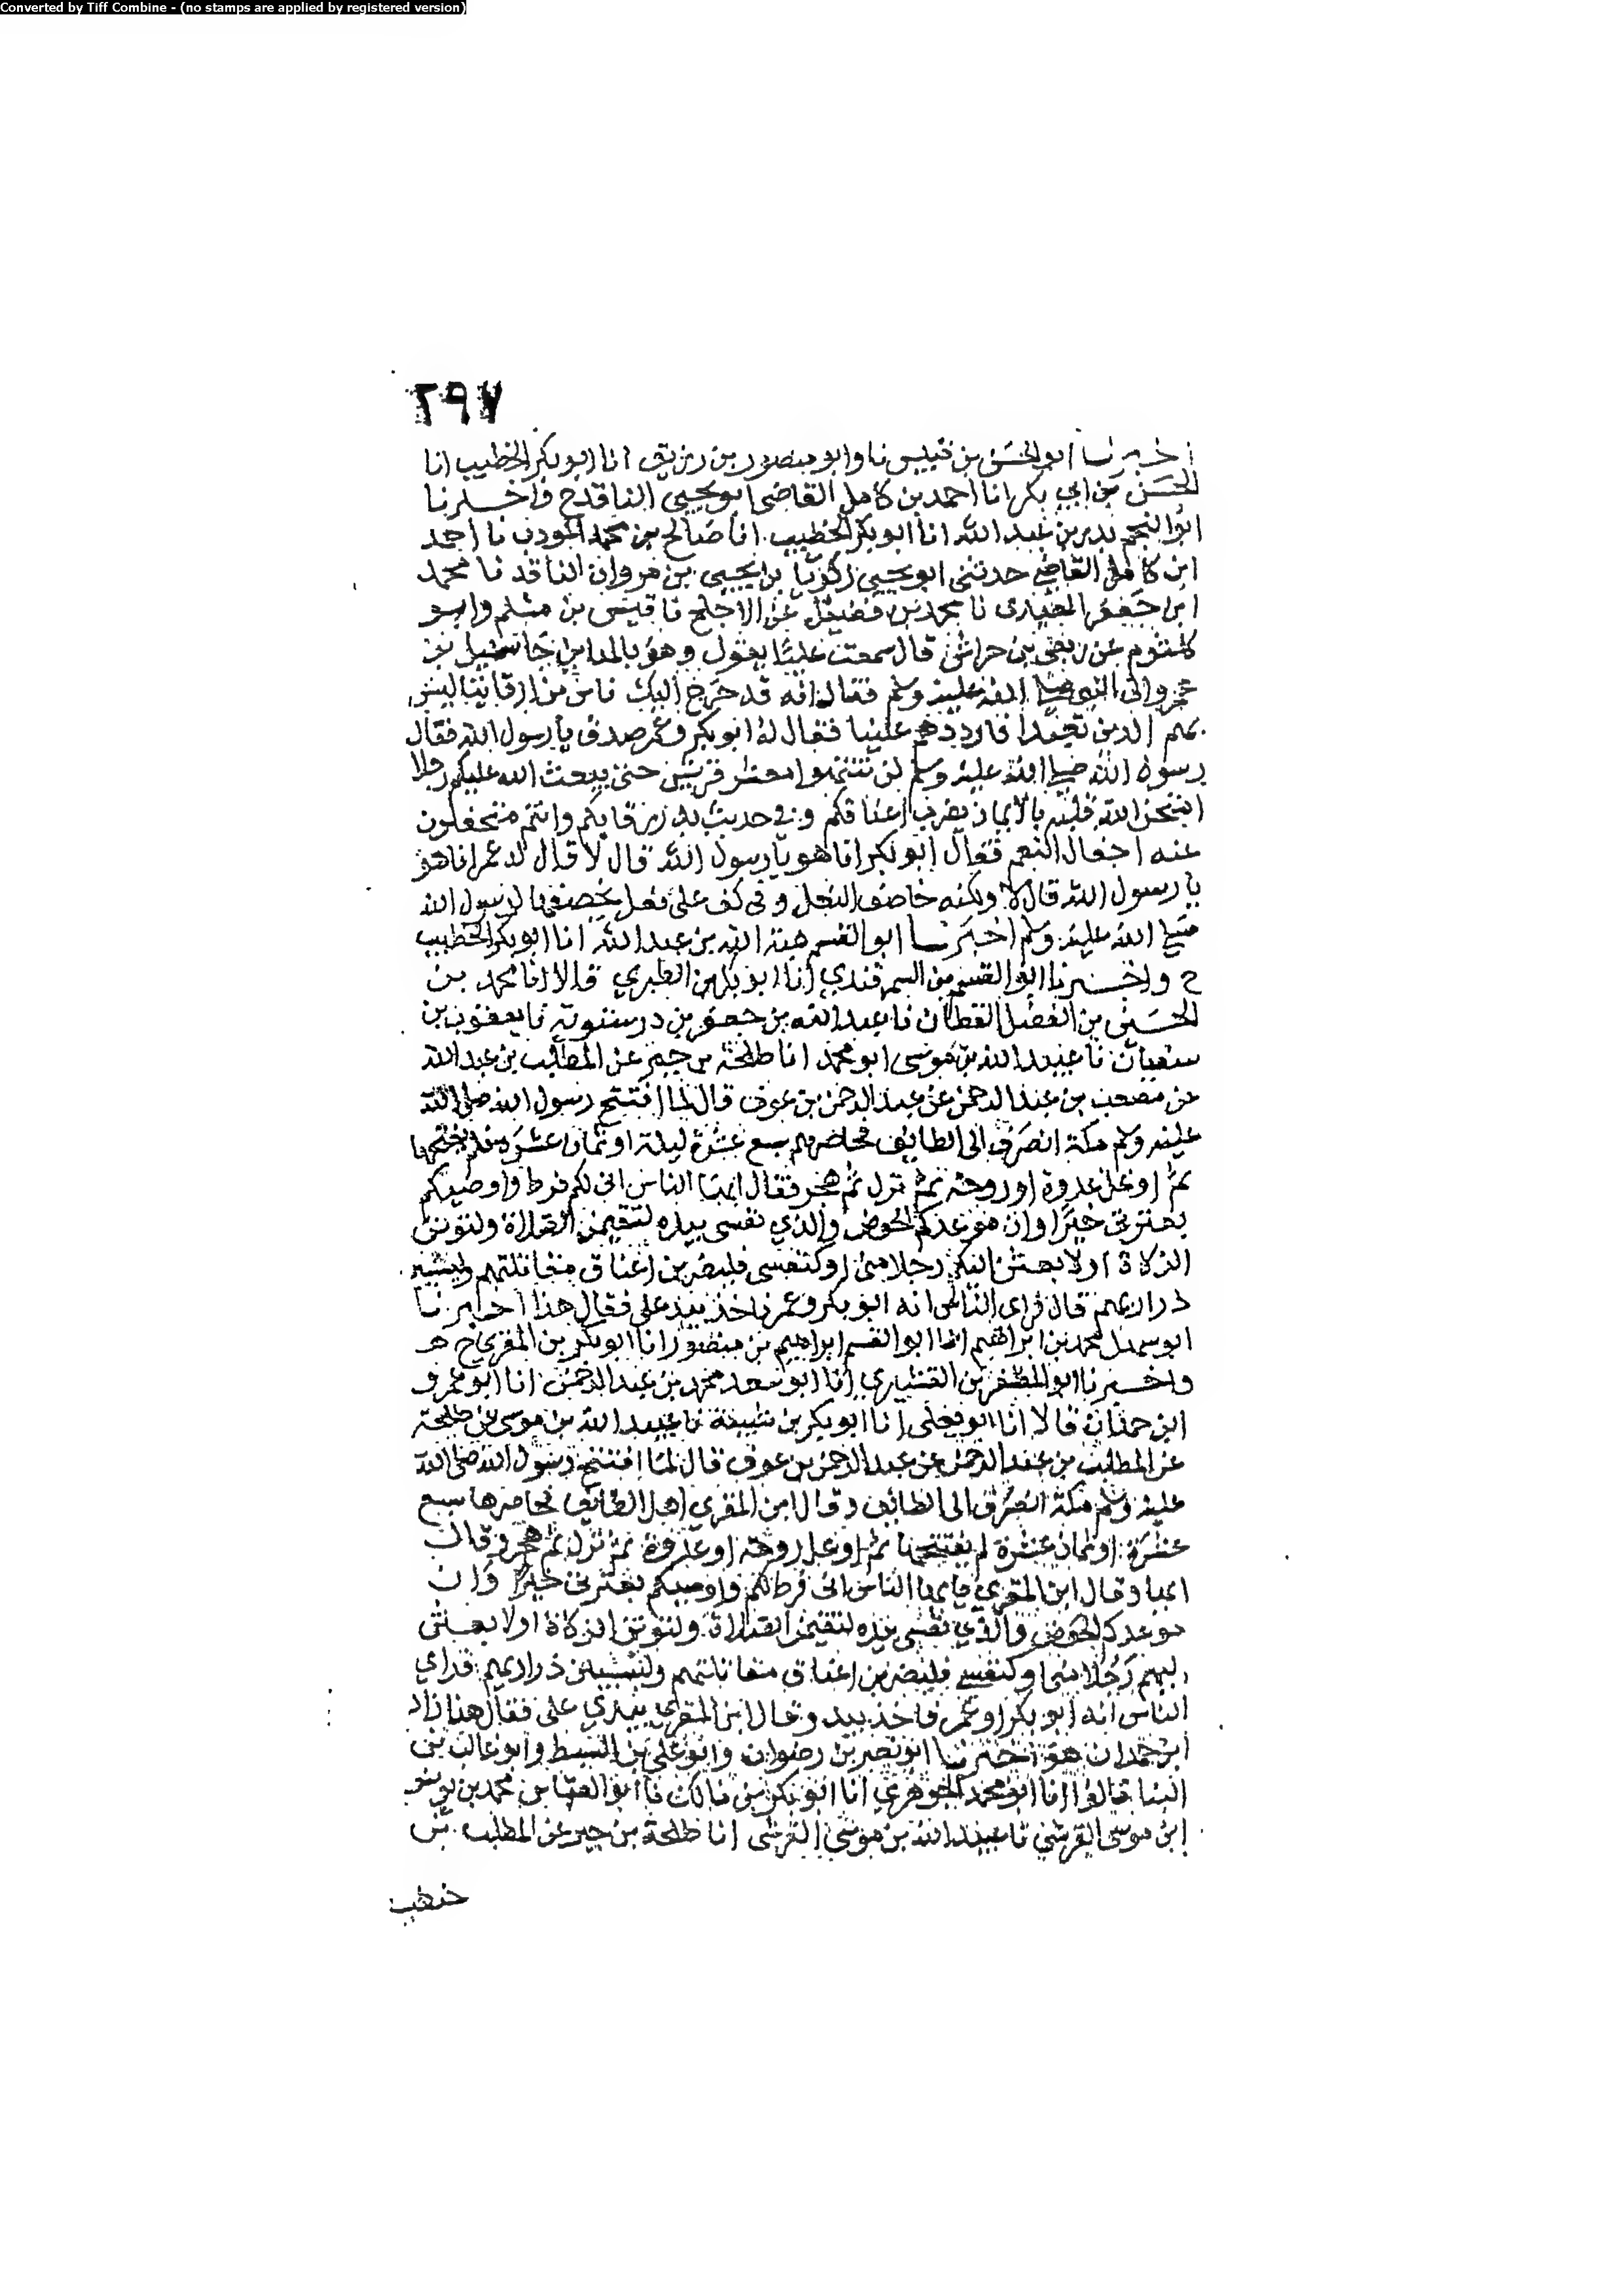 Converted by Tiff Combine - (no stamps are applied by registered version)
٢٩٧
اخبرنا ابو الحسن بن قبيس نا وابو منصور بن زريق انا ابو بكر الخطيب انا
الحسن بن ابي بكر انا احمد بن كامل القاضي ابو يحيى الناقد ح واخبرنا
ابو النجم بدر بن عبد الله انا ابو بكر الخطيب انا صالح بن محمد المودب نا احمد
ابن كامل القاضي حدثني ابو يحيى زكريا بن يحيى بن مروان الناقد نا محمد
ابن جعفر نا محمد بن فضيل عن الاجلح نا قيس بن مسلم وابو
كلثوم عن ربعي بن حراش قال سمعت عليا يقول وهو بالمداين جا سهيل بن
عمرو الى النبي صلى الله عليه وسلم فقال انه قد خرج اليك ناس من ارقاينا ليس
بهم الدين تعبدا فارددهم علينا فقال له ابو بكر وعمر صدق يا رسول الله فقال
رسول الله صلى الله عليه وسلم لن تنتهوا معشر قريش حتى يبعث الله عليكم رجلا
امتحن الله قلبه بالايمان يضرب اعناقكم وفي حديث بدر رقابكم وانتم متجفلون
عنه اجفال النعم فقال ابو بكر انا هو يا رسول الله قال لا قال له عمر انا هو
يا رسول الله قال لا ولكنه خاصف النعل وفي كف علي نعل يخصفها لرسول الله
صلى الله عليه وسلم اخبرنا ابو القسم هبة الله بن عبد الله انا ابو بكر الخطيب
ح واخبرنا ابو القسم بن السمرقندي انا ابو بكر بن الطبري قالا انا محمد بن
الحسين بن الفضل القطان نا عبد الله بن جعفر بن درستويه نا يعقوب بن
سفيان نا عبيد الله بن موسى ابو محمد انا طلحة بن جبر عن المطلب بن عبد الله
عن مصعب بن عبد الرحمن عن عبد الرحمن بن عوف قال لما افتتح رسول الله صلى الله
عليه وسلم مكة انصرف الى الطايف فحاصرهم سبع عشرة ليلة او ثمان عشرة فلم يفتحها
ثم اوغل غدوة او روحة ثم نزل ثم هجر فقال ايها الناس اني لكم فرط واوصيكم
بعترتي خيرا وان موعدكم الحوض والذي نفسي بيده لتقيمن الصلاة ولتوتن
الزكاة او لابعثن اليكم رجلا مني او كنفسي فليضربن اعناق مقاتلتهم وليسبين
ذراريهم قال فراى الناس انه ابو بكر وعمر فاخذ بيد علي فقال هذا اخبرنا
ابو سهل محمد بن ابراهيم انا ابو القسم ابراهيم بن منصور انا ابو بكر بن المقري ح
واخبرنا ابو المظفر بن القشيري انا ابو سعد محمد بن عبد الرحمن انا ابو عمرو
ابن حمدان قالا انا ابو يعلى انا ابو بكر بن شيبة نا عبيد الله بن موسى عن طلحة
عن المطلب بن عبد الرحمن عن عبد الرحمن بن عوف قال لما افتتح رسول الله صلى الله
عليه وسلم مكة انصرف الى الطايف وقال ابن المقري اهل الطايف فحاصرها سبع
عشرة او ثمان عشرة لم يفتتحها ثم اوغل روحة او غدوة ثم نزل ثم هجر فقال
ايها وقال ابن المقري يا ايها الناس اني فرط لكم واوصيكم بعترتي خيرا وان
موعدكم الحوض والذي نفسي بيده لتقيمن الصلاة ولتوتن الزكاة او لابعثن
اليهم رجلا مني او كنفسي فليضربن اعناق مقاتلتهم وليسبين ذراريهم فراي
الناس انه ابو بكر او عمر فاخذ بيد وقال ابن المقري بيدي علي فقال هذا زاد
ابن حمدان هو اخبرنا ابو نصر بن رضوان وابو علي بن السبط وابو غالب بن
البنا قالوا انا ابو محمد الجوهري انا ابو بكر بن مالك نا ابو العباس محمد بن يونس
ابن موسى القرشي نا عبيد الله بن موسى القرشي انا طلحة بن جبر عن المطلب بن
حنطب